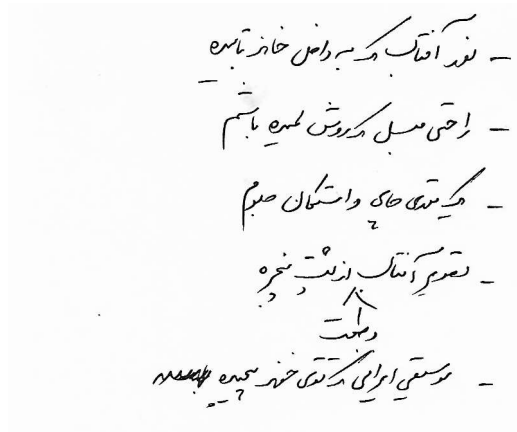 - نور آفتاب که به داخل خانه تابیده
- راحتی مبل که روش لمیده باشم
- یه قوری چای و استکان جلوم
- تصویر آفتاب از پشت پنجره
و طبیعت
- موسیقی ایرانی که توی خونه پیچیده